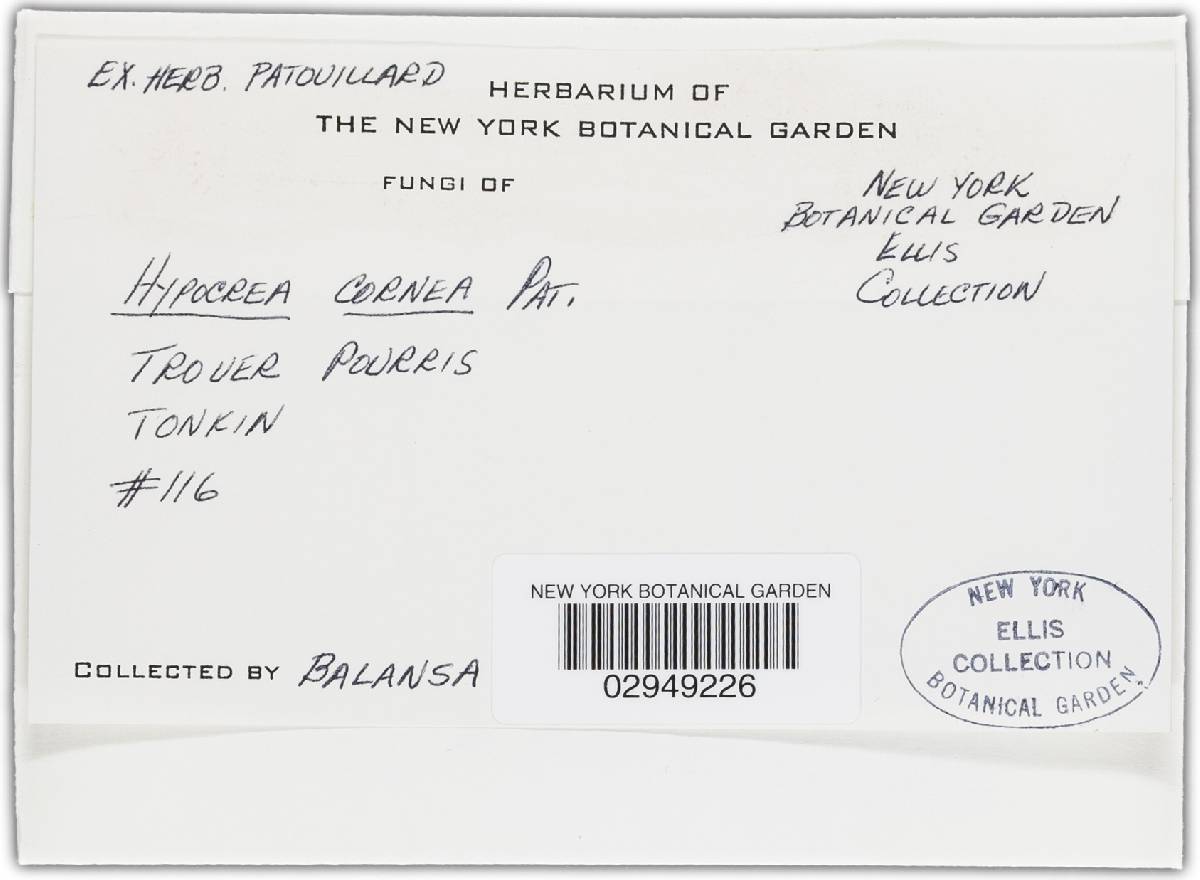 EX. HERB. PATOUILLARD
HERBARIUM OF
THE NEW YORK BOTANICAL GARDEN
FUNGI OF
NEW YORK
BOTANICAL GARDEN
ELLIS
COLLECTION
HYPOCREA CORNEA PAT.
TROUER POURRIS
TONKIN
#116
COLLECTED BY BALANSA
NEW YORK BOTANICAL GARDEN
02949226
NEW YORK
ELLIS
COLLECTION
BOTANICAL GARDEN